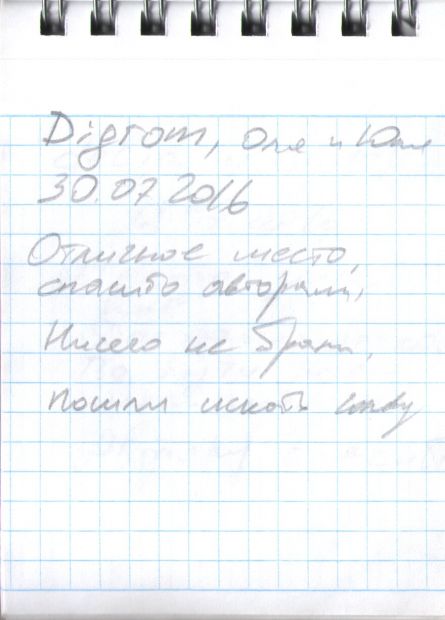 Digrom, Оля и Юля
30.07 2016
Отличное место,
спасибо авторам,
Ничего не брали,
пошли искать